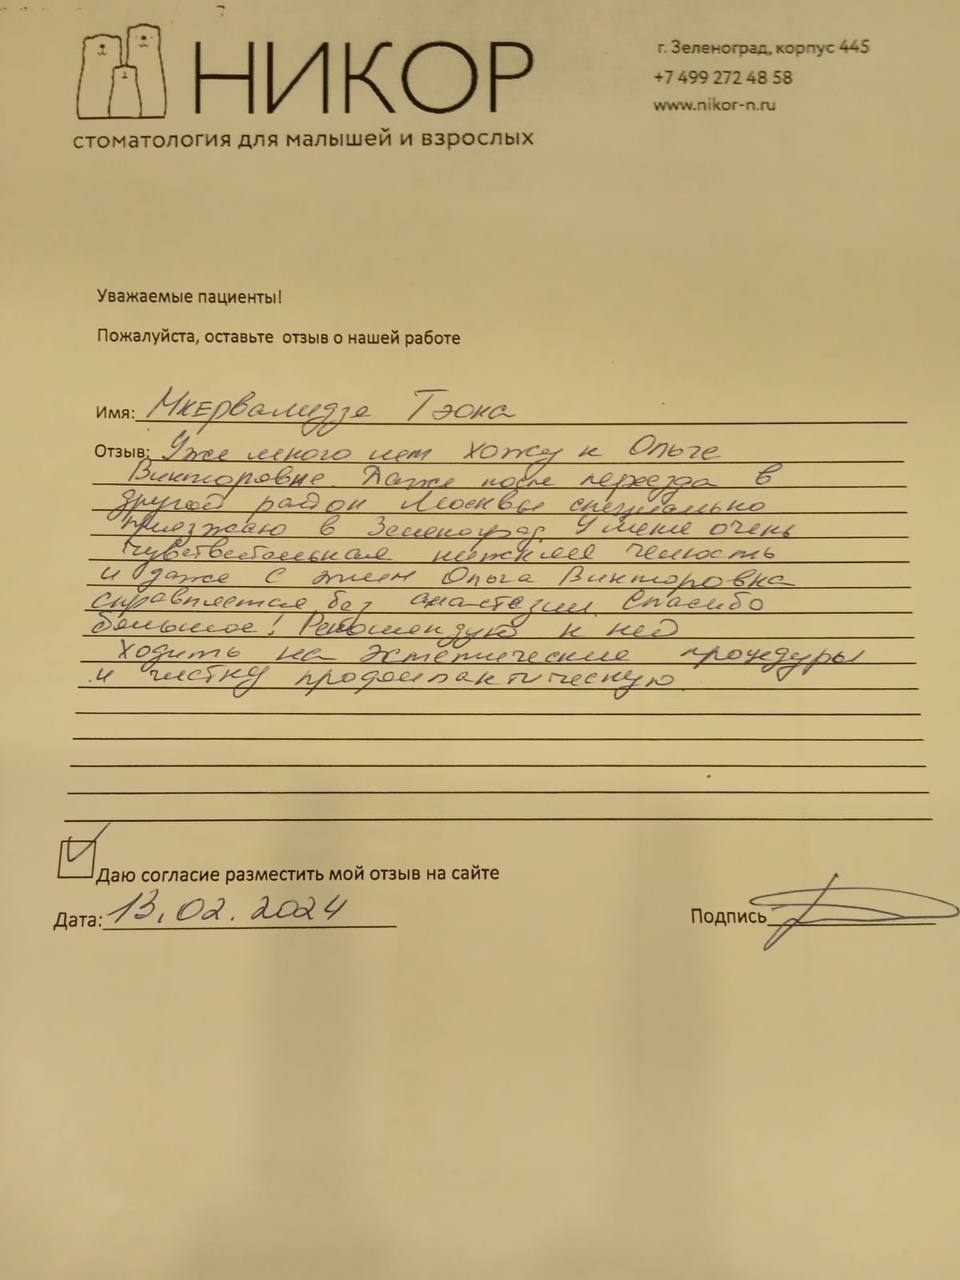 НИКОР
стоматология для малышей и взрослых
г. Зеленоград, корпус 445
+7 499 272 48 58
www.nikor-n.ru
Уважаемые пациенты!
Пожалуйста, оставьте отзыв о нашей работе
Имя: Мкервалидзе Тэона
Отзыв: Уже много лет хожу к Ольге
Викторовне. Даже после переезда в
другой район Москвы специально
приезжаю в Зеленоград. У меня очень
чувствительная нижняя челюсть
и даже с этим Ольга Викторовна
справляется без анастезии. Спасибо
большое! Рекомендую к ней
ходить на эстетические процедуры
и чистку профилактическую.
Даю согласие разместить мой отзыв на сайте
Дата: 13.02.2024
Подпись